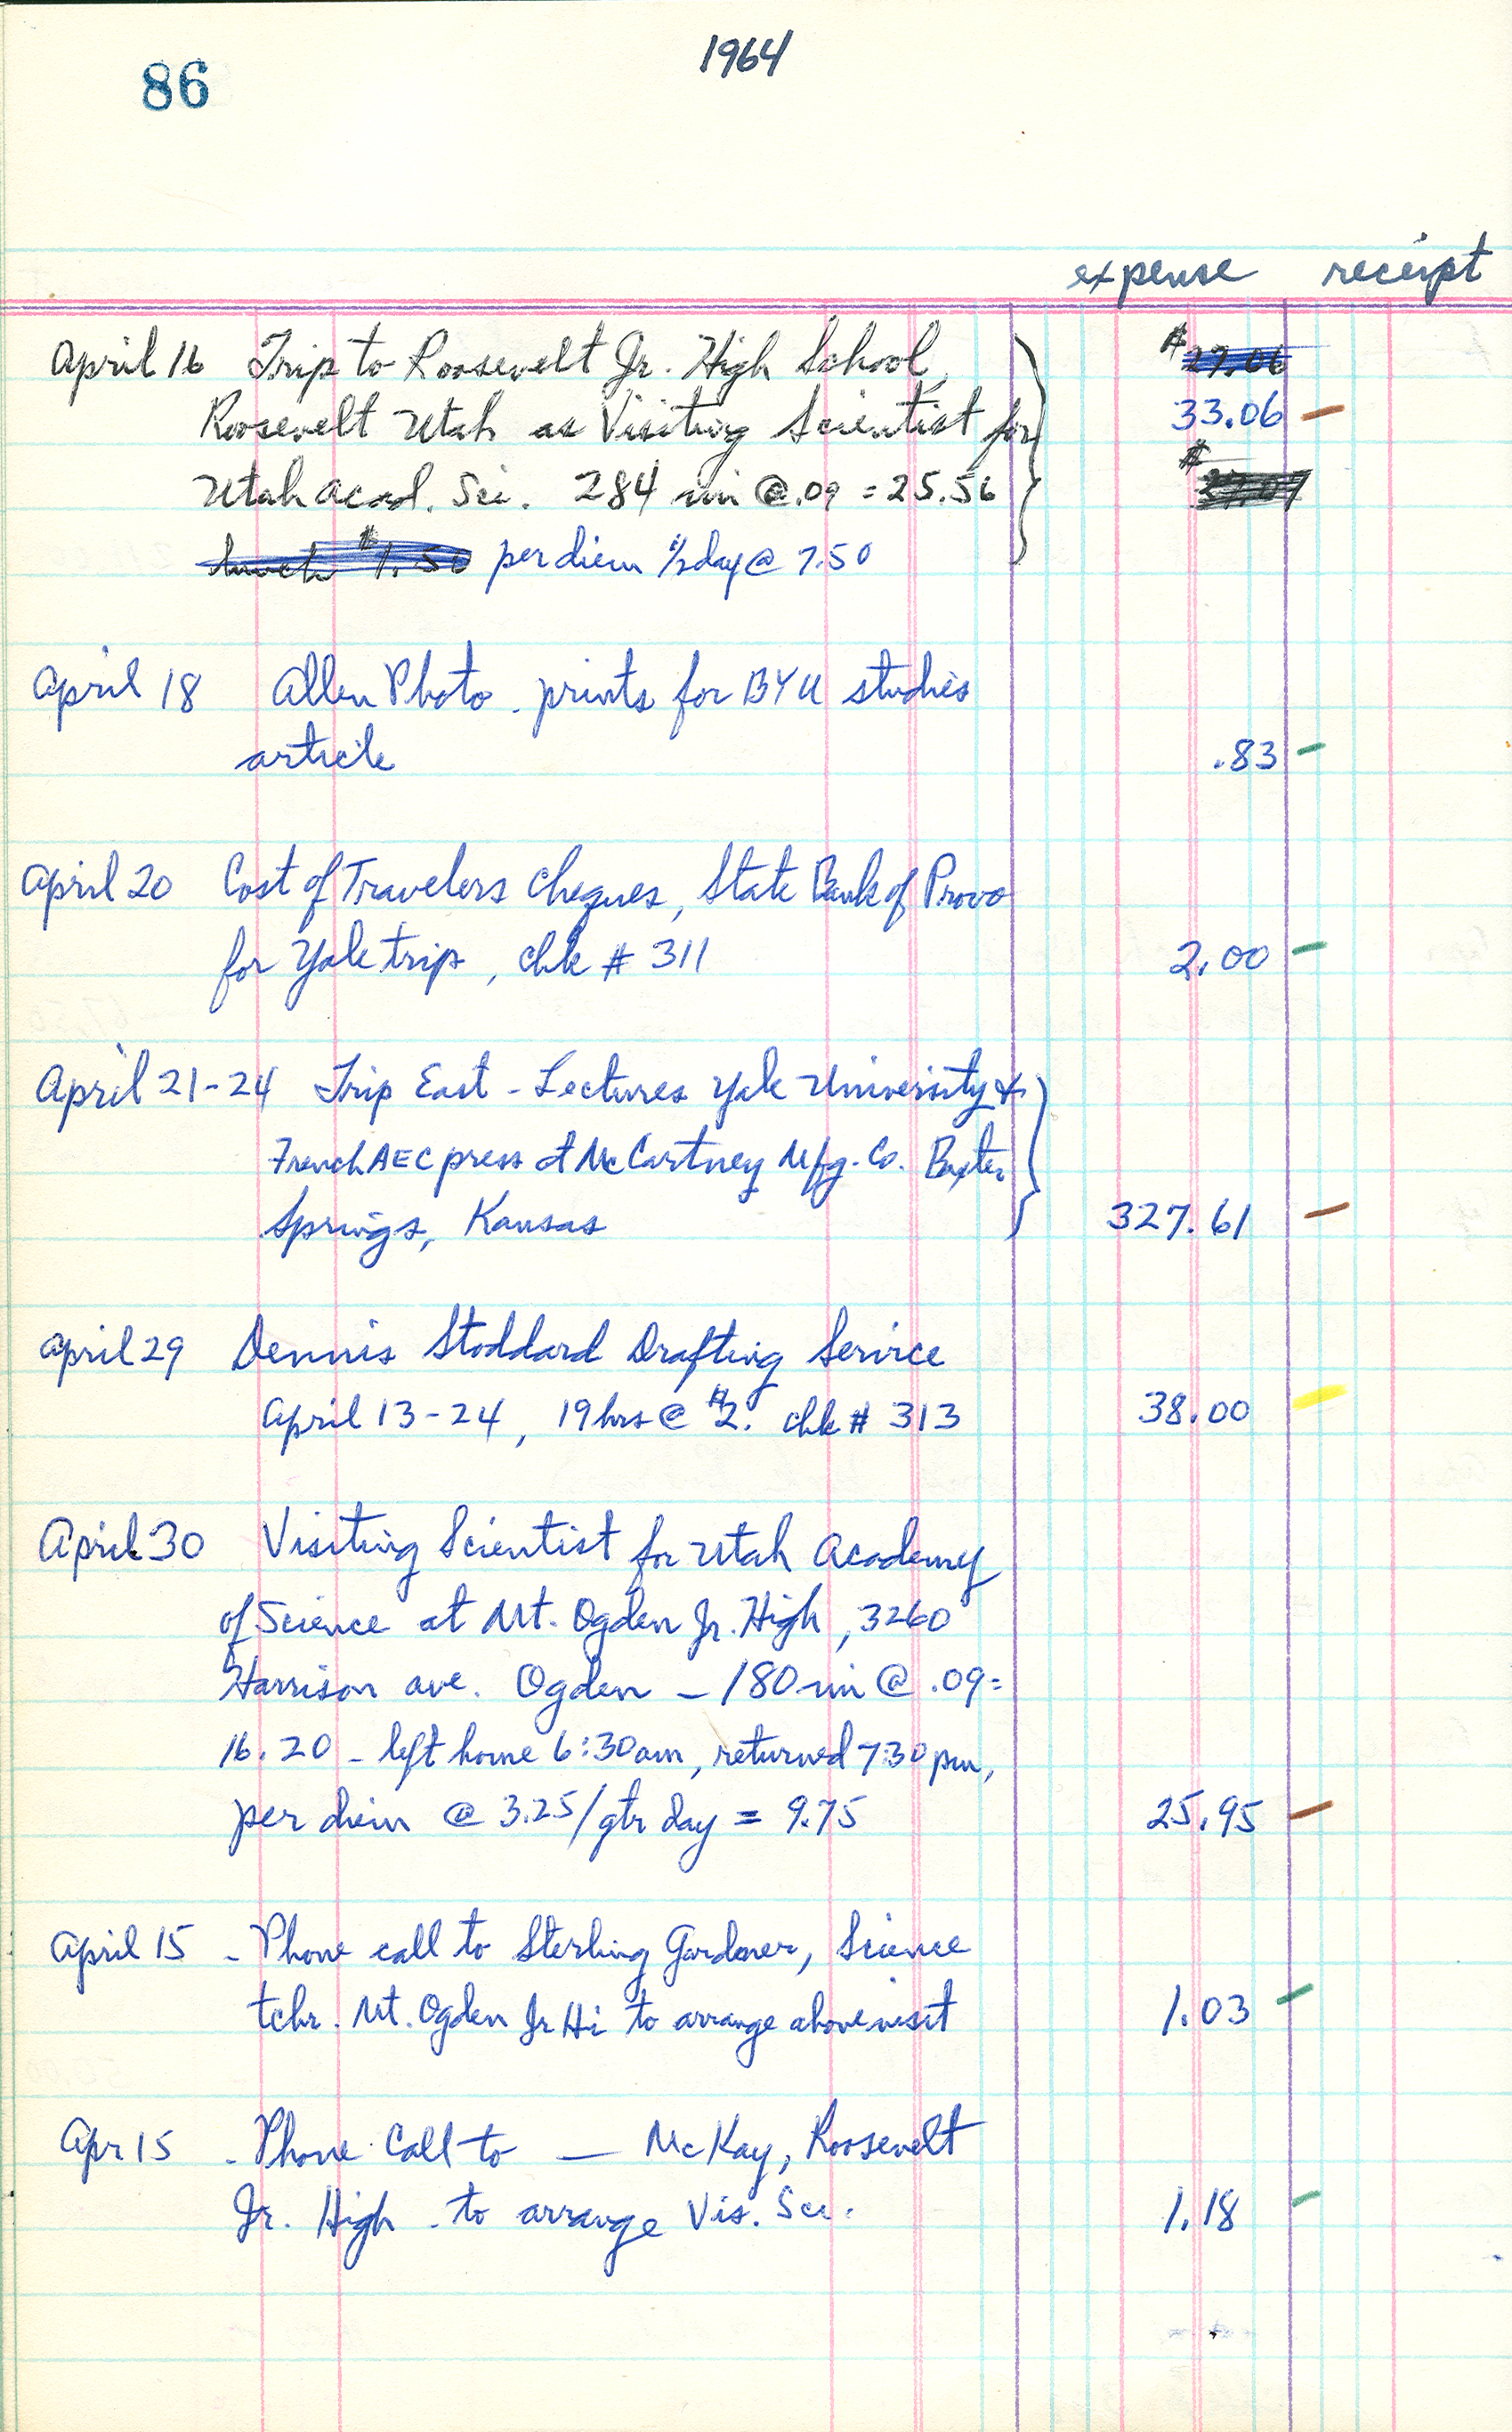 86
1964
expense receipt
April 16 Trip to Roosevelt Jr. High School, $27.06
Roosevelt Utah as Visiting Scientist for 33.06 –
Utah Acad. Sci. 284 mi @ .09 = 25.56 $
lunch $1.50 per diem 1/2 day @ 7.50
April 18 Allen Photo - prints for BYU studies
article .83 –
April 20 Cost of Travelers cheques, State Bank of Provo
for Yale trip, chk # 311 2.00 –
April 21-24 Trip East - Lectures Yale University &
French AEC press at McCartney Mfg. Co. Baxter
Springs, Kansas 327.61 –
April 29 Dennis Stoddard Drafting Service
April 13-24, 19 hrs @ $2. chk # 313 38.00
April 30 Visiting Scientist for Utah Academy
of Science at Mt. Ogden Jr. High, 3260
Harrison Ave. Ogden – 180 mi @ .09 =
16.20 - left home 6:30 am, returned 7:30 pm,
per diem @ 3.25/qtr day = 9.75 25.95 –
April 15 - Phone call to Sterling Gardner, Science
tchr. Mt. Ogden Jr Hi to arrange above visit 1.03 –
Apr 15 - Phone Call to — McKay, Roosevelt
Jr. High - to arrange Vis. Sci. 1.18 –